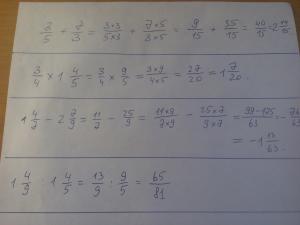 3/5 + 7/3 = 3×3/5×3 + 7×5/3×5 = 9/15 + 35/15 = 40/15 = 2 14/15
3/4 × 1 4/5 = 3/4 × 9/5 = 3×9/4×5 = 27/20 = 1 7/20.
1 4/7 - 2 7/9 = 11/7 - 25/9 = 11×9/7×9 - 25×7/9×7 = 99-175/63 = -76/63
= -1 13/63.
1 4/9 : 1 4/5 = 13/9 : 9/5 = 65/81